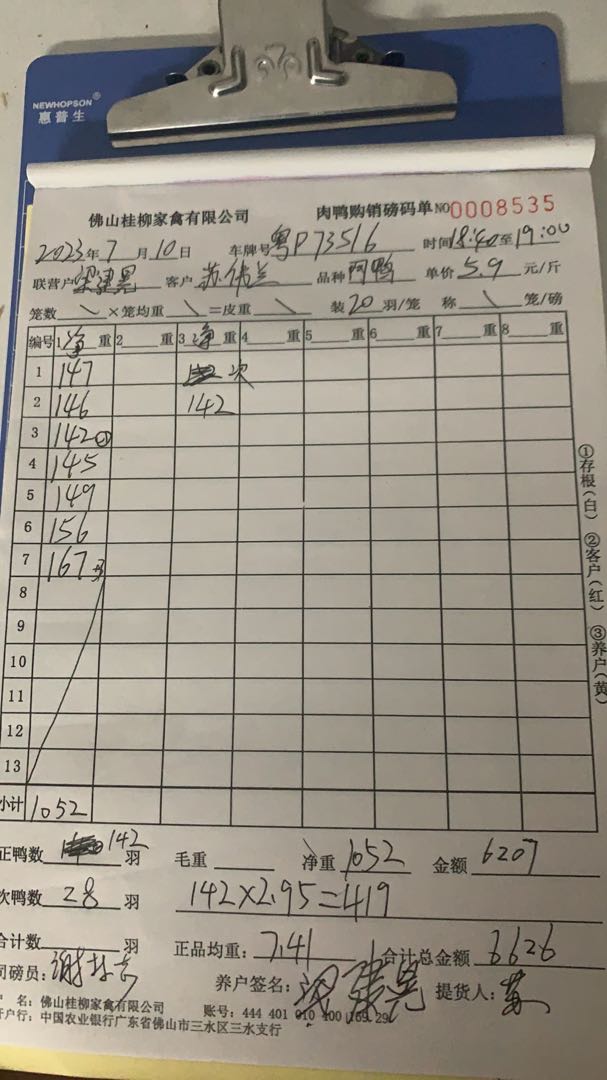 NEWHOPSON®
惠普生
佛山桂柳家禽有限公司 肉鸭购销磅码单 NO 0008535
2023年7月10日 车牌号 粤P73516 时间 18:40至19:00
联营户 梁建晃 客户 苏伟兰 品种 肉鸭 单价 5.9 元/斤
笼数 \ ×笼均重 \ =皮重 \ 装 20 羽/笼 称 \ 笼/磅
编号 1 净 重 2 重 3 净 重 4 重 5 重 6 重 7 重 8 重
1 147 次
2 146 142
3 142
4 145
5 149
6 156
7 167
8
9
10
11
12
13
小计 1052
①存根(白) ②客户(红) ③养户(黄)
正鸭数 142 羽 毛重 净重 1052 金额 6207
次鸭数 28 羽 142×2.95=419
合计数 羽 正品均重: 7.41 合计总金额 6626
司磅员: 养户签名: 梁建晃 提货人: 黄
户 名: 佛山桂柳家禽有限公司 账号: 444 401 010 400 169 29
开户行: 中国农业银行广东省佛山市三水区三水支行